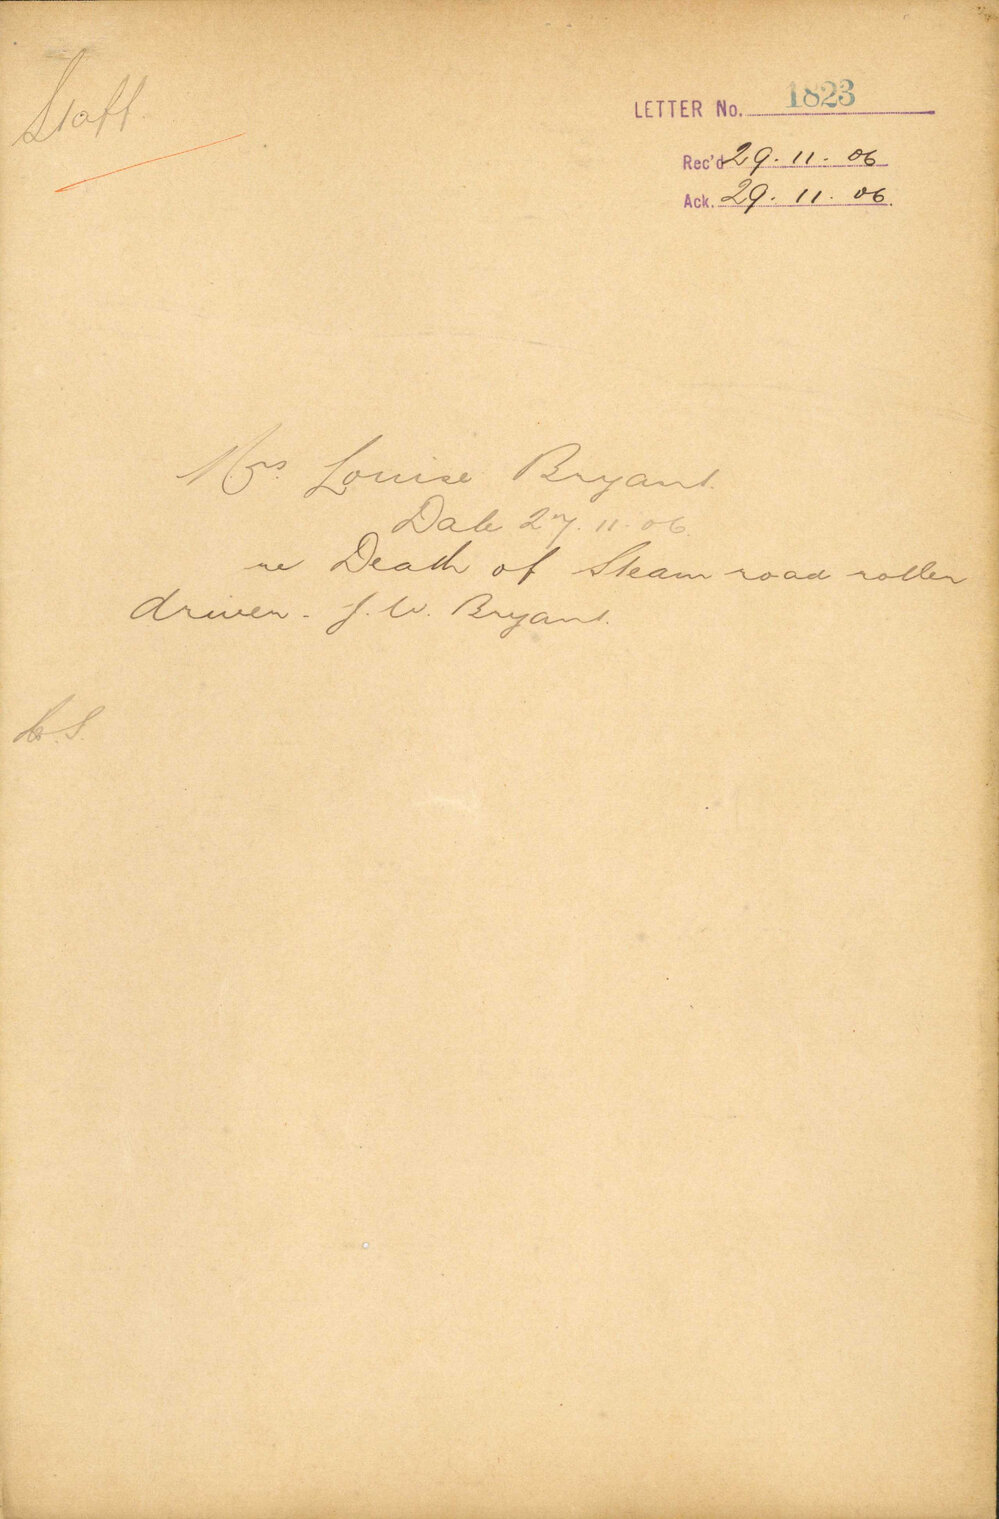 Staff.
LETTER No. 1823
Rec'd 29. 11. 06
Ack. 29. 11. 06.
Mrs. Louise Bryant.
Date 27. 11. 06.
re Death of Steam road roller
driver - J. W. Bryant.